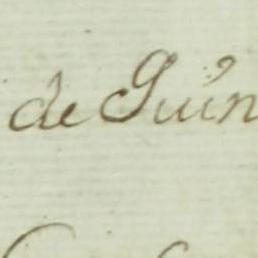 de Guin